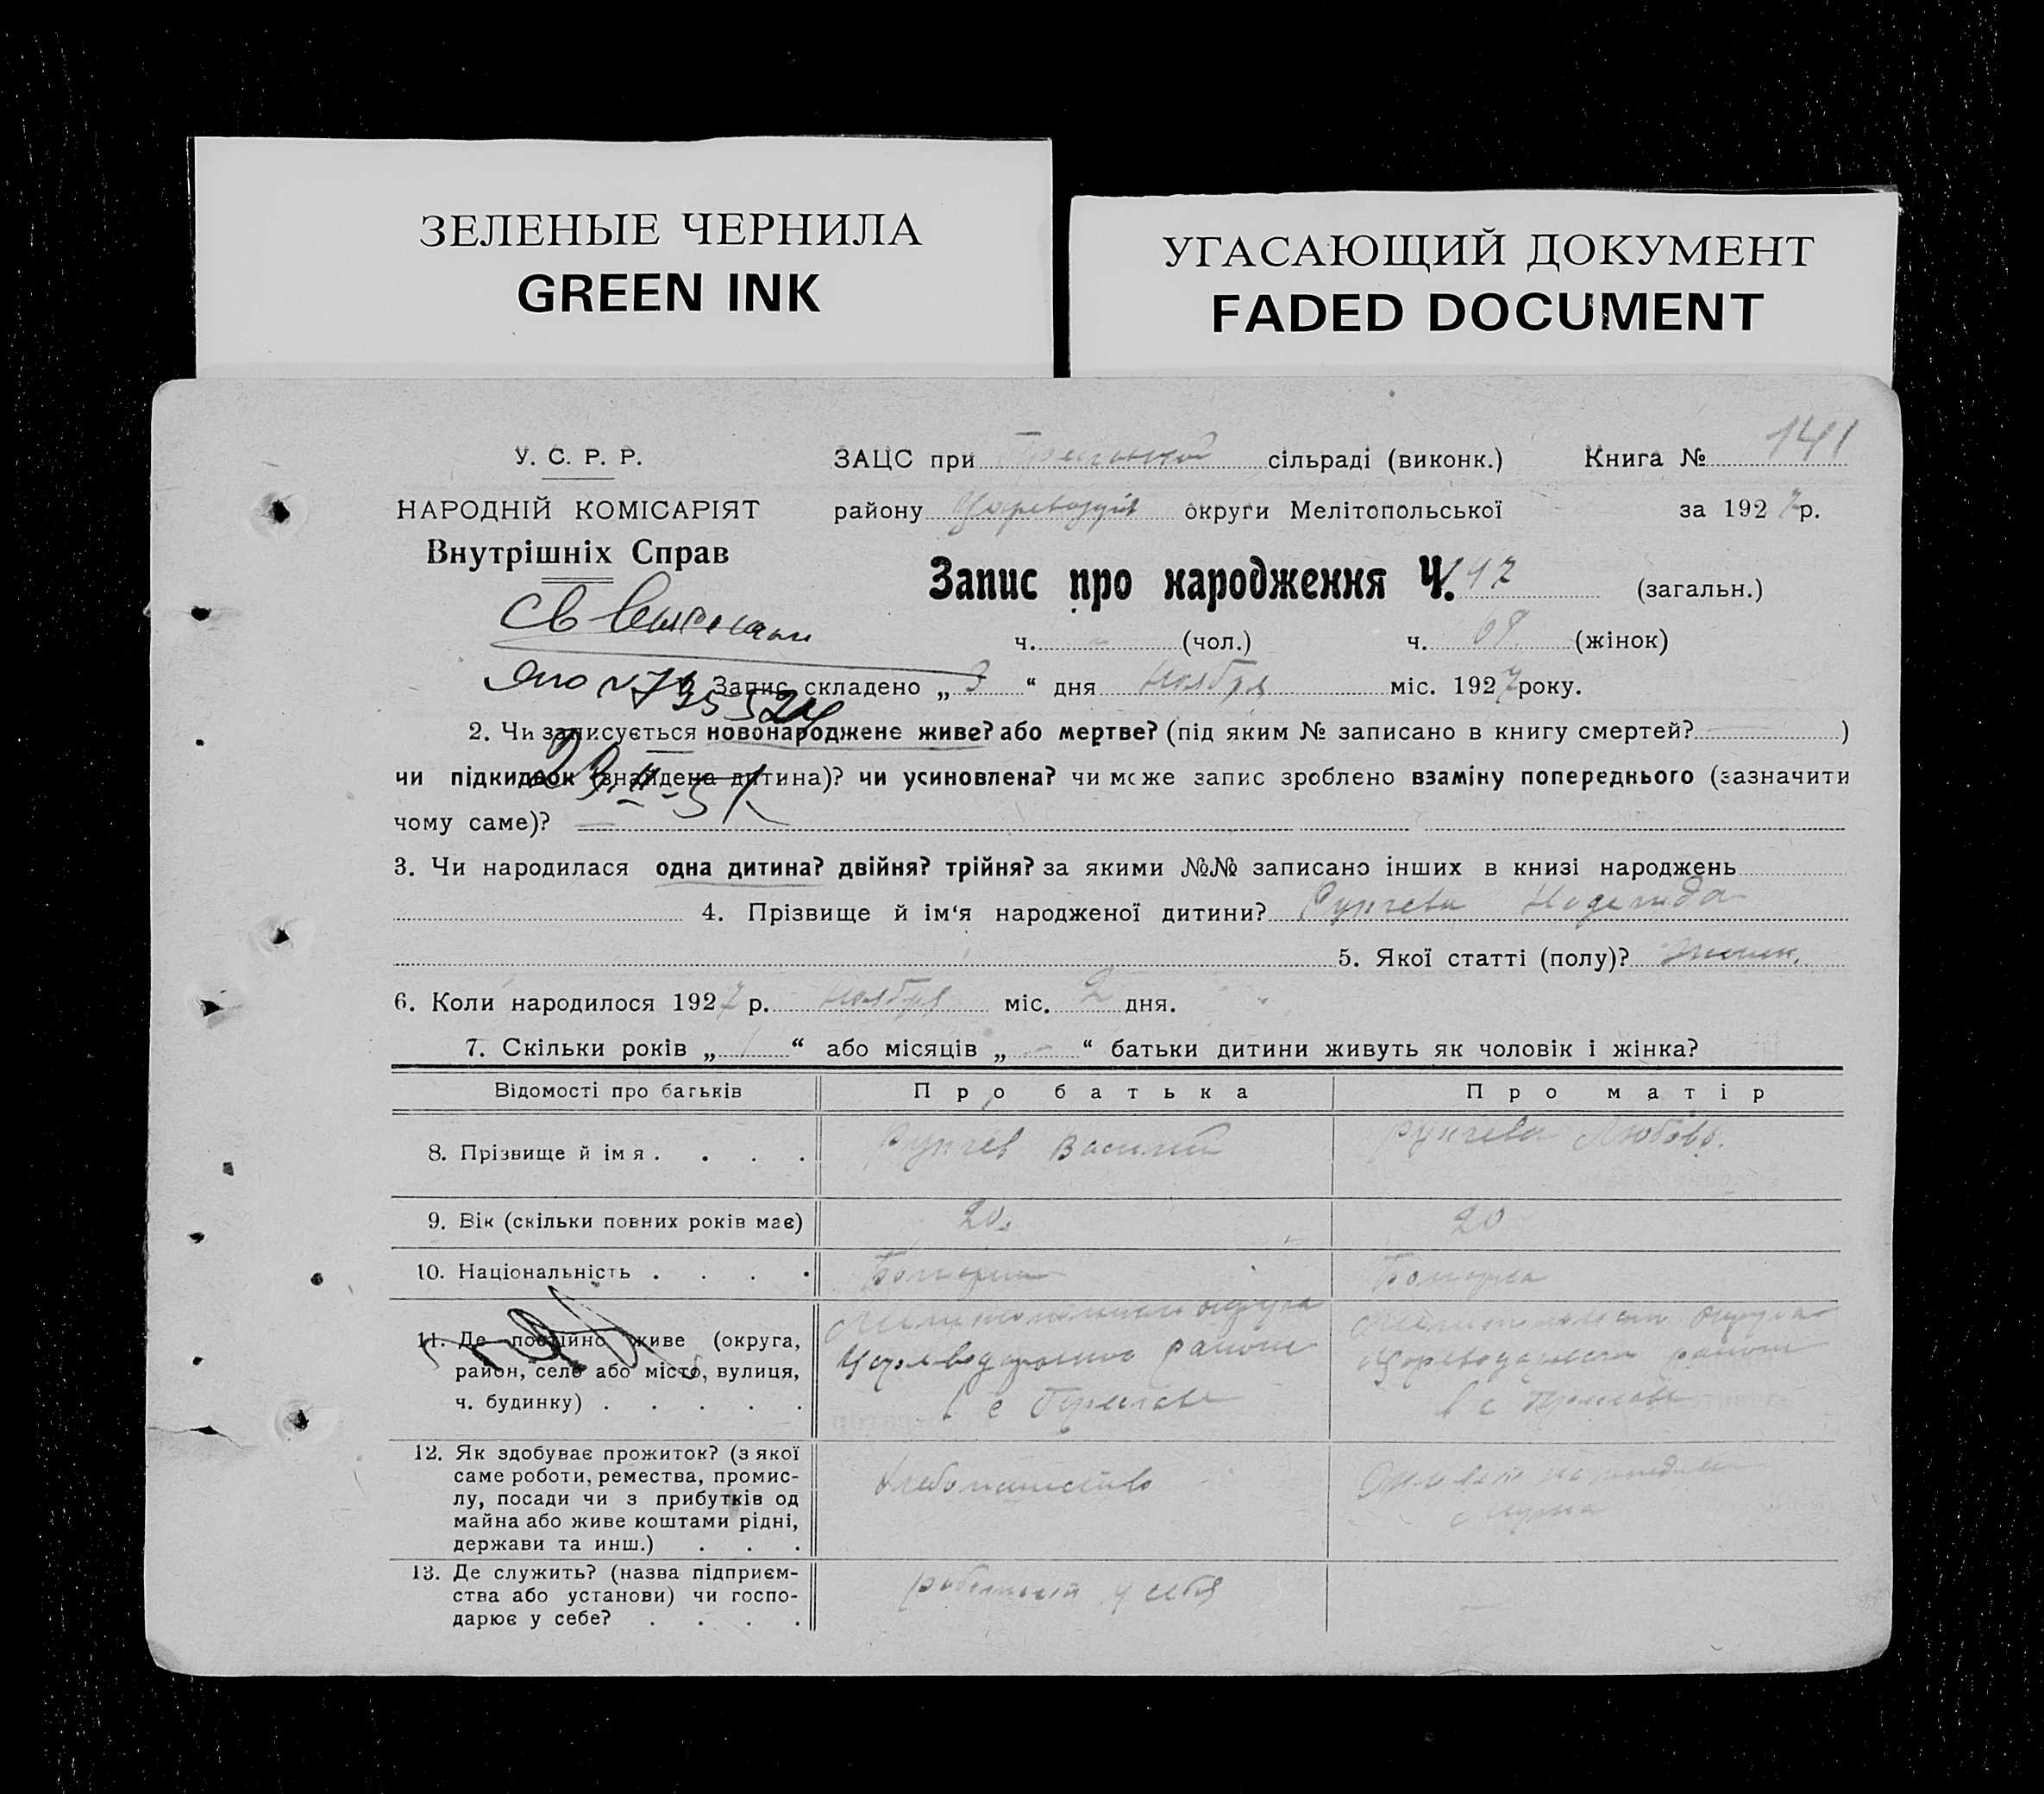 ЗЕЛЕНЫЕ ЧЕРНИЛА
GREEN INK
УГАСАЮЩИЙ ДОКУМЕНТ
FADED DOCUMENT
У. С. Р. Р.
ЗАЦС при сільраді (виконк.) Книга № 141
НАРОДНІЙ КОМІСАРІЯТ
району округи Мелітопольської за 1927 р.
Внутрішніх Справ
Запис про народження Ч. 147 (загальн.)
св
ч. - (чол.) ч. 69 (жінок)
Запис складено „ 3 “ дня Ноября міс. 1927 року.
2. Чи записується новонароджене живе? або мертве? (під яким № записано в книгу смертей? )
чи підкидьок (знайдена дитина)? чи усиновлена? чи може запис зроблено взаміну попереднього (зазначити
чому саме)?
3. Чи народилася одна дитина? двійня? трійня? за якими №№ записано інших в книзі народжень
4. Прізвище й ім‘я народженої дитини? Рунчева Надежда
5. Якої статті (полу)? женск.
6. Коли народилося 1927 р. ноября міс. 2 дня.
7. Скільки років „ 1 “ або місяців „ - “ батьки дитини живуть як чоловік і жінка?
Відомості про батьків Про батька Про матір
8. Прізвище й імя . . . . Рунчев Василий Рунчева Любовь.
9. Вік (скільки повних років має) 20. 20
10. Національність . . . .
11. Де постійно живе (округа,
район, село або місто, вулиця, район район
ч. будинку) . . . . . в с в с
12. Як здобуває прожиток? (з якої
саме роботи, ремества, промис-
лу, посади чи з прибутків од
майна або живе коштами рідні,
держави та инш.) . . .
хлебопашество
13. Де служить? (назва підприєм-
ства або установи) чи госпо-
дарює у себе? . . . .
у себя